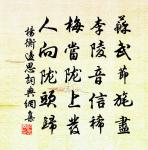 蘇武節旄盡
李陵音信稀
梅當隴上發
人向隴頭歸
楊衡邊思詞典網集